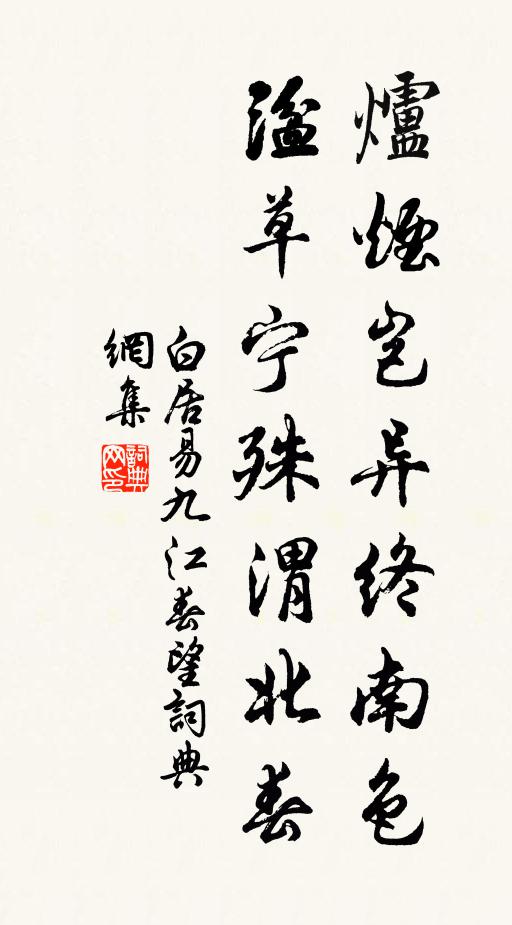 爐煙岂异终南色
湓草宁殊渭北春
白居易九江春望詞典
網集
詞典
网印